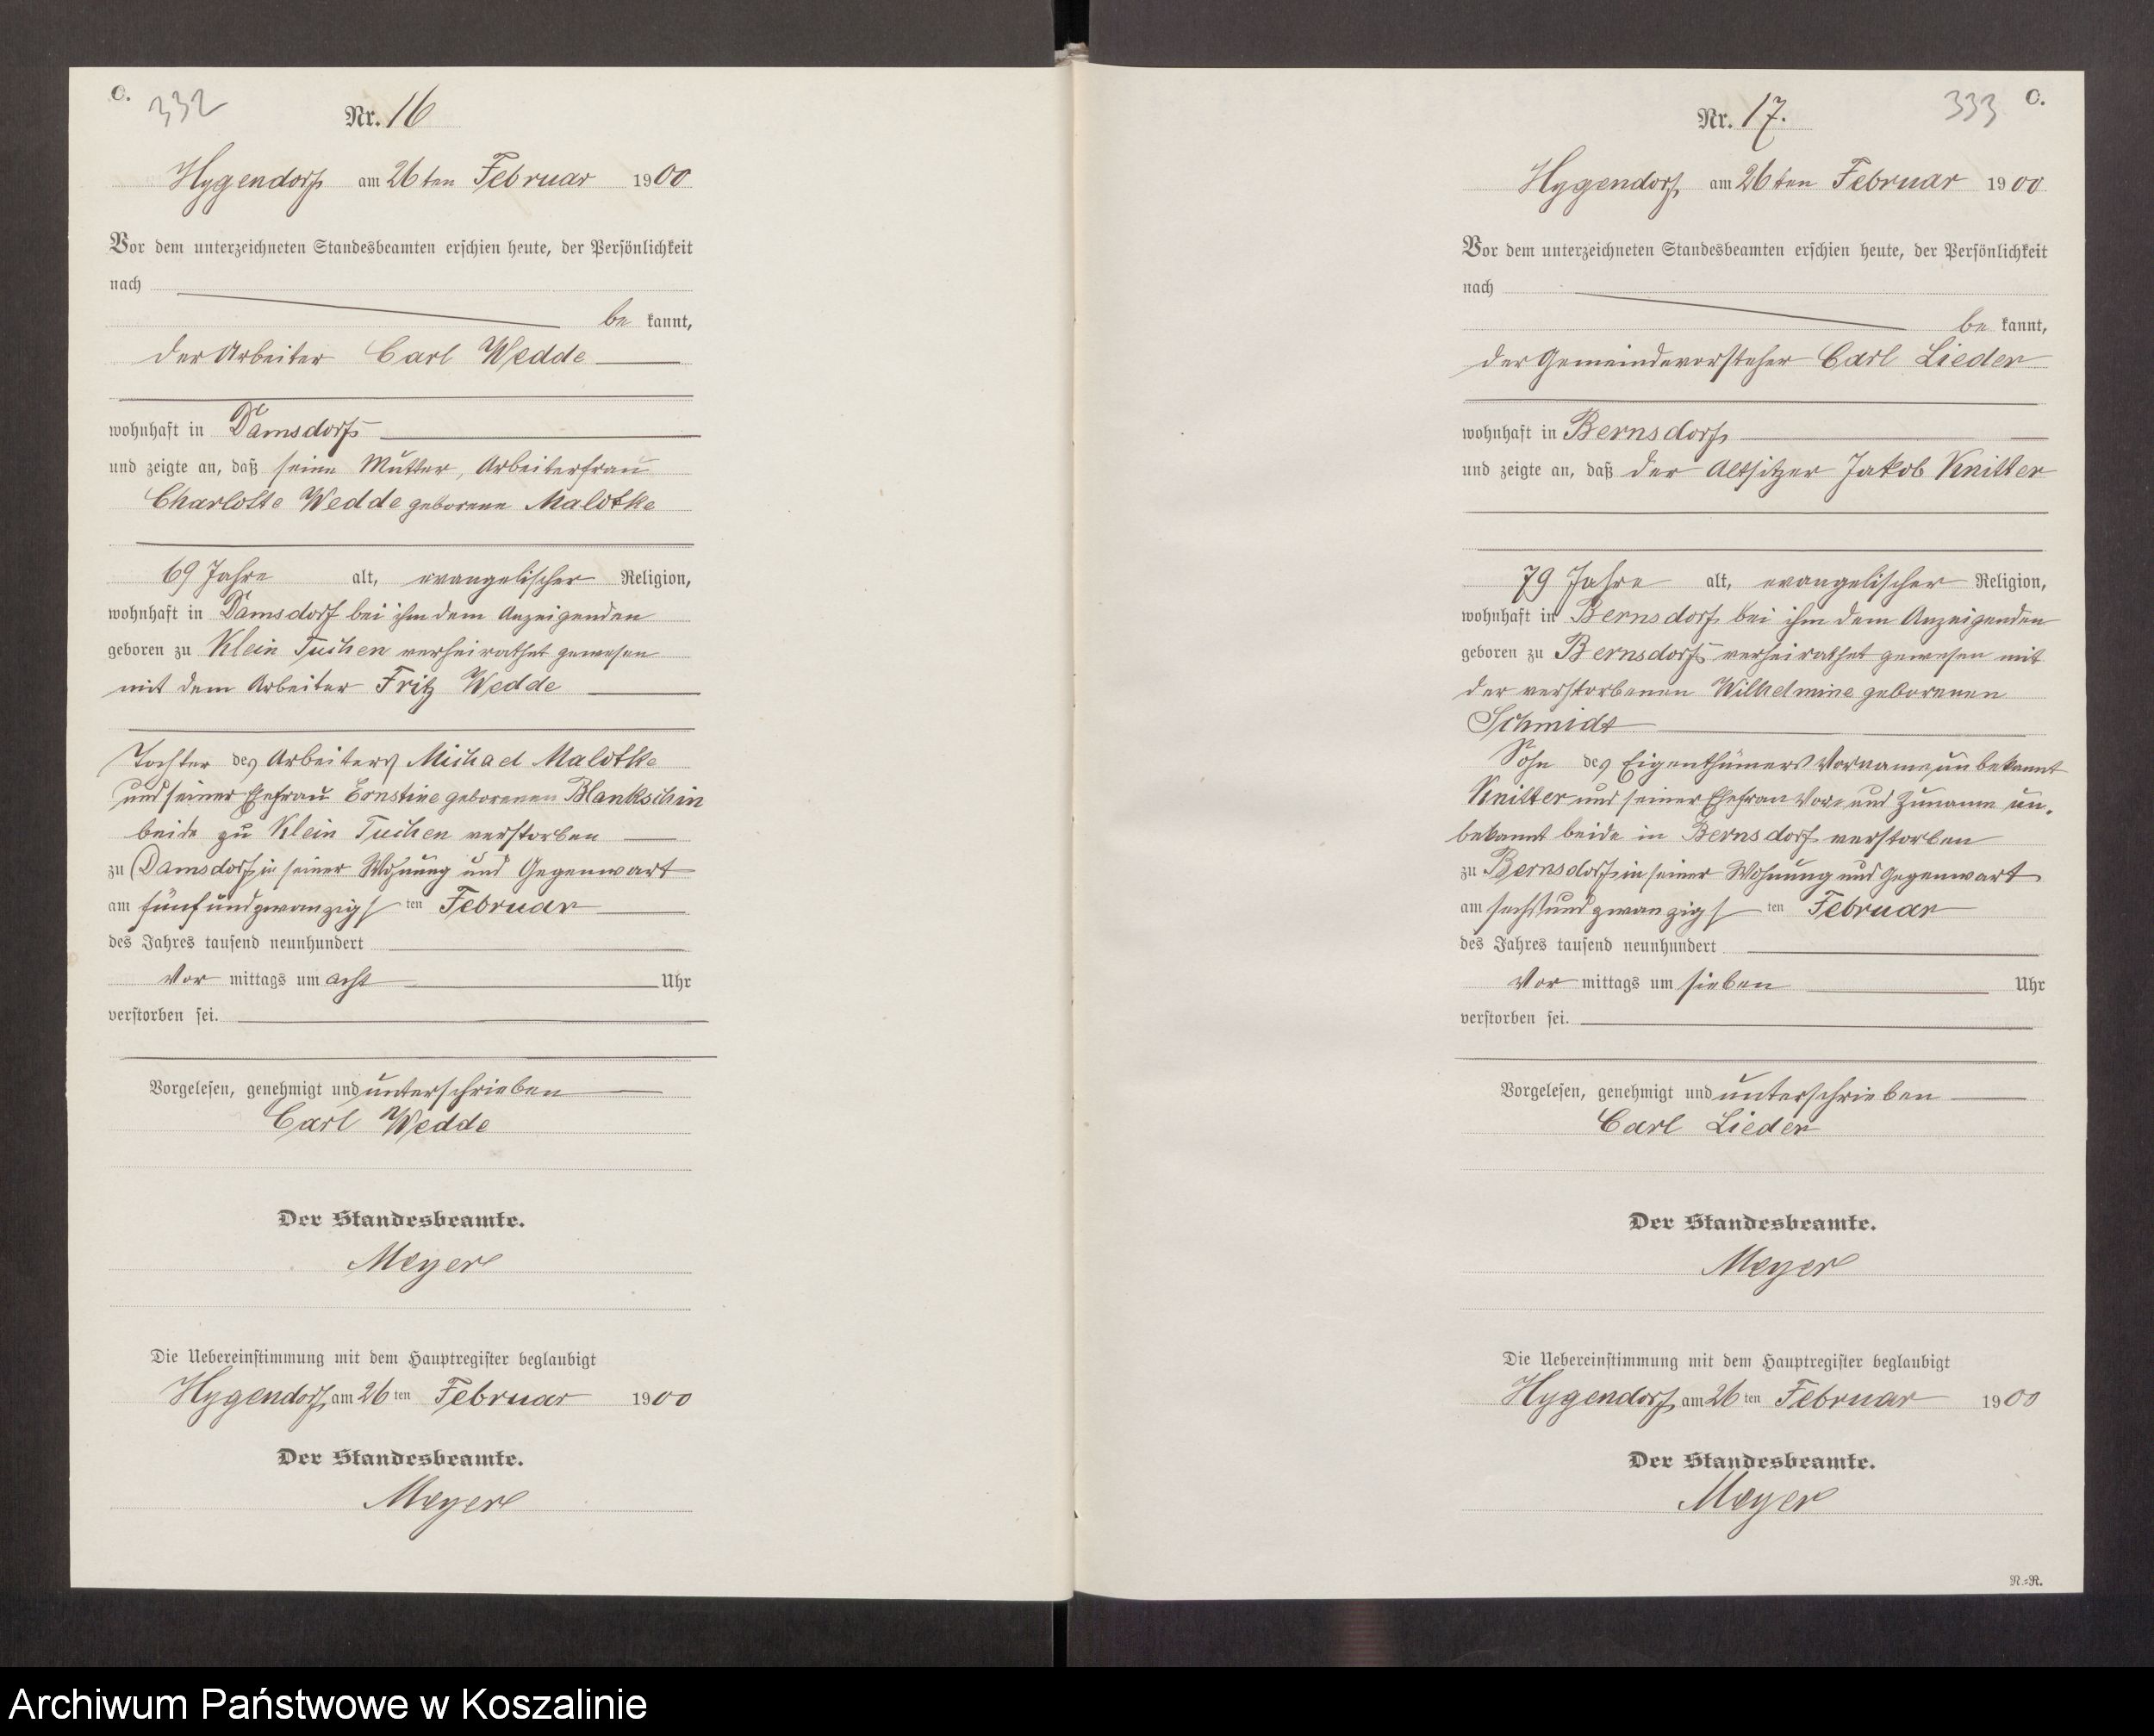 C.
332
Nr. 16
Hygendorf am 26ten Februar 1900
Vor dem unterzeichneten Standesbeamten erschien heute, der Persönlichkeit
nach
be kannt,
der Arbeiter Carl Wedde
wohnhaft in Damsdorf
und zeigte an, daß seine Mutter, Arbeiterfrau
Charlotte Wedde geborene Malotke
69 Jahre alt, evangelischer Religion,
wohnhaft in Damsdorf bei ihm dem Anzeigenden
geboren zu Klein Tuchen verheirathet gewesen
mit dem Arbeiter Fritz Wedde
Tochter des Arbeiters Michael Malotke
und seiner Ehefrau Ernstine geborenen Blankschin
beide zu Klein Tuchen verstorben
zu Damsdorf, in seiner Wohnung und Gegenwart
am fünfundzwanzigsten Februar
des Jahres tausend neunhundert
Vor mittags um acht Uhr
verstorben sei.
Vorgelesen, genehmigt und unterschrieben
Carl Wedde
Der Standesbeamte.
Meyer
Die Uebereinstimmung mit dem Hauptregister beglaubigt
Hygendorf, am 26 ten Februar 1900
Der Standesbeamte.
Meyer
333
C.
Nr. 17.
Hygendorf, am 26ten Februar 1900
Vor dem unterzeichneten Standesbeamten erschien heute, der Persönlichkeit
nach
be kannt,
der Gemeindevorsteher Carl Lieder
wohnhaft in Bernsdorf
und zeigte an, daß der Altsitzer Jakob Knitter
79 Jahre alt, evangelischer Religion,
wohnhaft in Bernsdorf bei ihm dem Anzeigenden
geboren zu Bernsdorf verheirathet gewesen mit
der verstorbenen Wilhelmine geborenen
Schmidt
Sohn des Eigenthümers Vorname unbekannt
Knitter und seiner Ehefrau Vor- und Zuname un-
bekannt beide in Bernsdorf verstorben
zu Bernsdorf in seiner Wohnung und Gegenwart
am sechsundzwanzigsten Februar
des Jahres tausend neunhundert
Vor mittags um sieben Uhr
verstorben sei.
Vorgelesen, genehmigt und unterschrieben
Carl Lieder
Der Standesbeamte.
Meyer
Die Uebereinstimmung mit dem Hauptregister beglaubigt
Hygendorf, am 26 ten Februar 1900
Der Standesbeamte.
Meyer
N.=R.
Archiwum Państwowe w Koszalinie